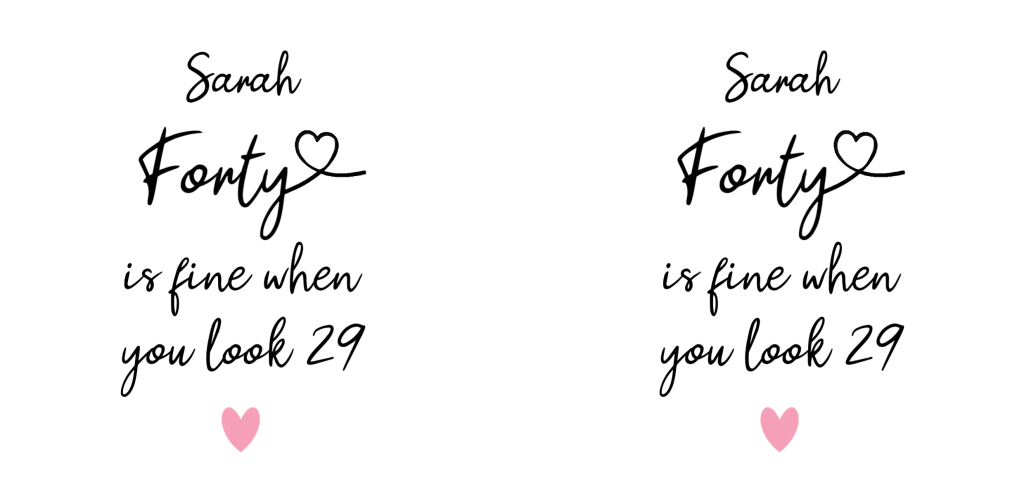 Sarah
Forty
is fine when
you look 29
Sarah
Forty
is fine when
you look 29